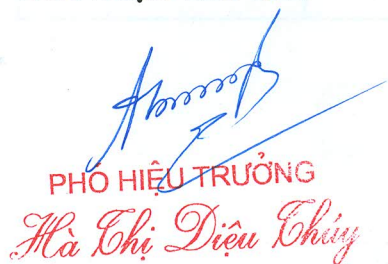 PHÓ HIỆU TRƯỞNG
Hà Thị Diệu Thúy